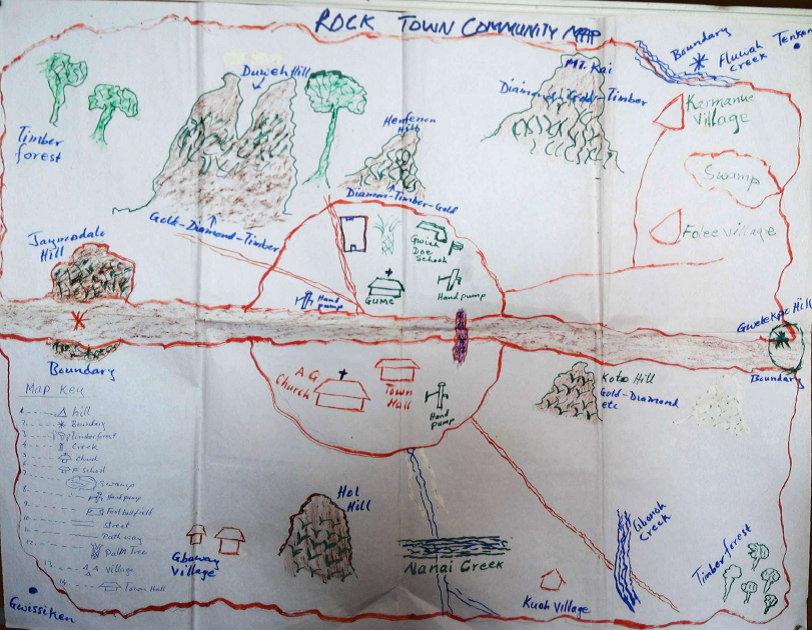 ROCK TOWN COMMUNITY MAP
Boundary
Fluwah
Creek
Mt. Kai
Diamond-Gold-Timber
Duweh Hill
Kermanue
Village
Timber
forest
Henfenen
Hill
Swamp
Diamon-Timber-Gold
Gold-Diamond-Timber
Folee Village
Jaymodale
Hill
Gwiah
Doe
School
Hand
pump
Gumc
Hand pump
Gwelekpo Hill
Boundary
Boundary
A.G
Church
Town
Hall
Hand
pump
Koto Hill
Gold-Diamond
etc
Map Key
1. hill
2. Boundary
3. Timber forest
4. Creek
5. Church
6. School
Swamp
8. Hand pump
Foot ball field
10. Street
11. Path way
12. Palm Tree
13. Village
14. Town Hall
Hol
Hill
Gbanch
Creek
Gbaway
Village
Nanai Creek
Timber forest
Kuoh Village
Gwissiken